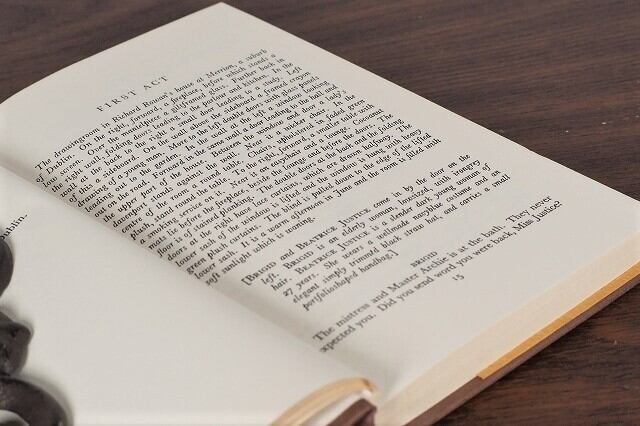 Dublin.
FIRST ACT
The drawingroom in Richard Rowan's house at Merrion, a suburb
of Dublin. On the right, forward, a fireplace, before which stands a
low screen. Over the mantelpiece a giltframed glass. Further back in
the right wall, folding doors leading to the parlour and kitchen. In the
wall at the back to the right a small door leading to a study. Left
of this a sideboard. On the wall above the sideboard a framed crayon
drawing of a young man. More to the left double doors with glass panels
leading out to the garden. In the wall at the left a window looking
out on the road. Forward in the same wall a door leading to the hall and
the upper part of the house. Between the window and door a lady's
davenport stands against the wall. Near it a wicker chair. In the
centre of the room a round table. Chairs, upholstered in faded green
plush, stand round the table. To the right, forward, a smaller table with
a smoking service on it. Near it an easychair and a lounge. Cocoanut
mats lie before the fireplace, beside the lounge and before the doors. The
floor is of stained planking. The double doors at the back and the folding
doors at the right have lace curtains, which are drawn halfway. The
lower sash of the window is lifted and the window is hung with heavy
green plush curtains. The blind is pulled down to the edge of the lifted
lower sash. It is a warm afternoon in June and the room is filled with
soft sunlight which is waning.
[BRIGID and BEATRICE JUSTICE come in by the door on the
left. BRIGID is an elderly woman, lowsized, with irongrey
hair. BEATRICE JUSTICE is a slender dark young woman of
27 years. She wears a wellmade navyblue costume and an
elegant simply trimmed black straw hat, and carries a small
portfolioshaped handbag.]
BRIGID
The mistress and Master Archie is at the bath. They never
expected you. Did you send word you were back, Miss Justice?
15